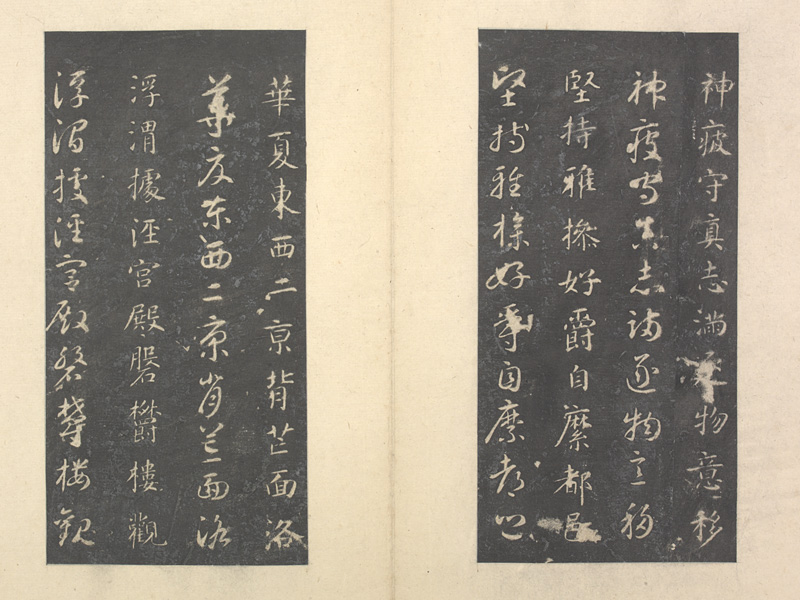 神疲守真志滿物意移
神疲守真志滿逐物意移
堅持雅操好爵自縻都邑
堅持雅操好爵自縻都邑
華夏東西二亰背芒面洛
華夏東西二京背芒面洛
浮渭據涇宮殿磐鬱樓觀
浮渭據涇宮殿磐鬱樓觀